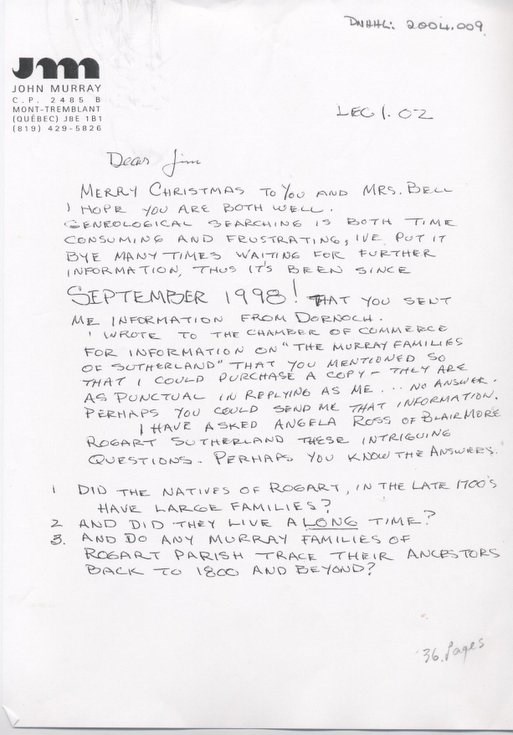 DNHHL: 2004.009
jm
JOHN MURRAY
C.P. 2485 B
MONT-TREMBLANT
(QUÉBEC) J8E 1B1
(819) 429-5826
DEC 1. 02
Dear Jim
MERRY CHRISTMAS TO YOU AND MRS. BELL
I HOPE YOU ARE BOTH WELL.
GENEOLOGICAL SEARCHING IS BOTH TIME
CONSUMING AND FRUSTRATING, IVE PUT IT
BYE MANY TIMES WAITING FOR FURTHER
INFORMATION, THUS IT'S BEEN SINCE
SEPTEMBER 1998! THAT YOU SENT
ME INFORMATION FROM DORNOCH.
I WROTE TO THE CHAMBER OF COMMERCE
FOR INFORMATION ON "THE MURRAY FAMILIES
OF SUTHERLAND" THAT YOU MENTIONED SO
THAT I COULD PURCHASE A COPY - THEY ARE
AS PUNCTUAL IN REPLYING AS ME... NO ANSWER.
PERHAPS YOU COULD SEND ME THAT INFORMATION.
I HAVE ASKED ANGELA ROSS OF BLAIRMORE
ROGART SUTHERLAND THESE INTRIGUING
QUESTIONS - PERHAPS YOU KNOW THE ANSWERS.
1 DID THE NATIVES OF ROGART, IN THE LATE 1700'S
HAVE LARGE FAMILIES?
2 AND DID THEY LIVE A LONG TIME?
3. AND DO ANY MURRAY FAMILIES OF
ROGART PARISH TRACE THEIR ANCESTORS
BACK TO 1800 AND BEYOND?
36 Pages